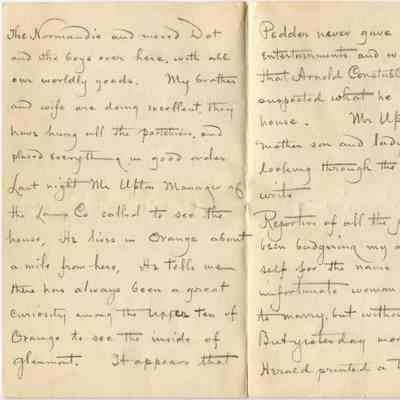 The Normandie and moved Dot
and the boys over here, with all
our worldly goods. My brother
and wife are doing excellent, they
have hung all the portieres, and
placed everything in good order.
Last night Mr Upton Manager of
the Lamp Co called to see the
house, He lives in Orange about
a mile from here, He tells me
there has always been a great
curiosity among the Upper ten of
Orange to see the inside of
Glenmont. It appears that
Pedder never gave
entertainments, and w
that Arnold Constabl
suspected what he
house. Mr Up
mother son and lad
looking through the
write
Reporters of all the
been badgering my
self for the name
unfortunate woman
to marry, but witho
But yesterday mor
Herald printed a